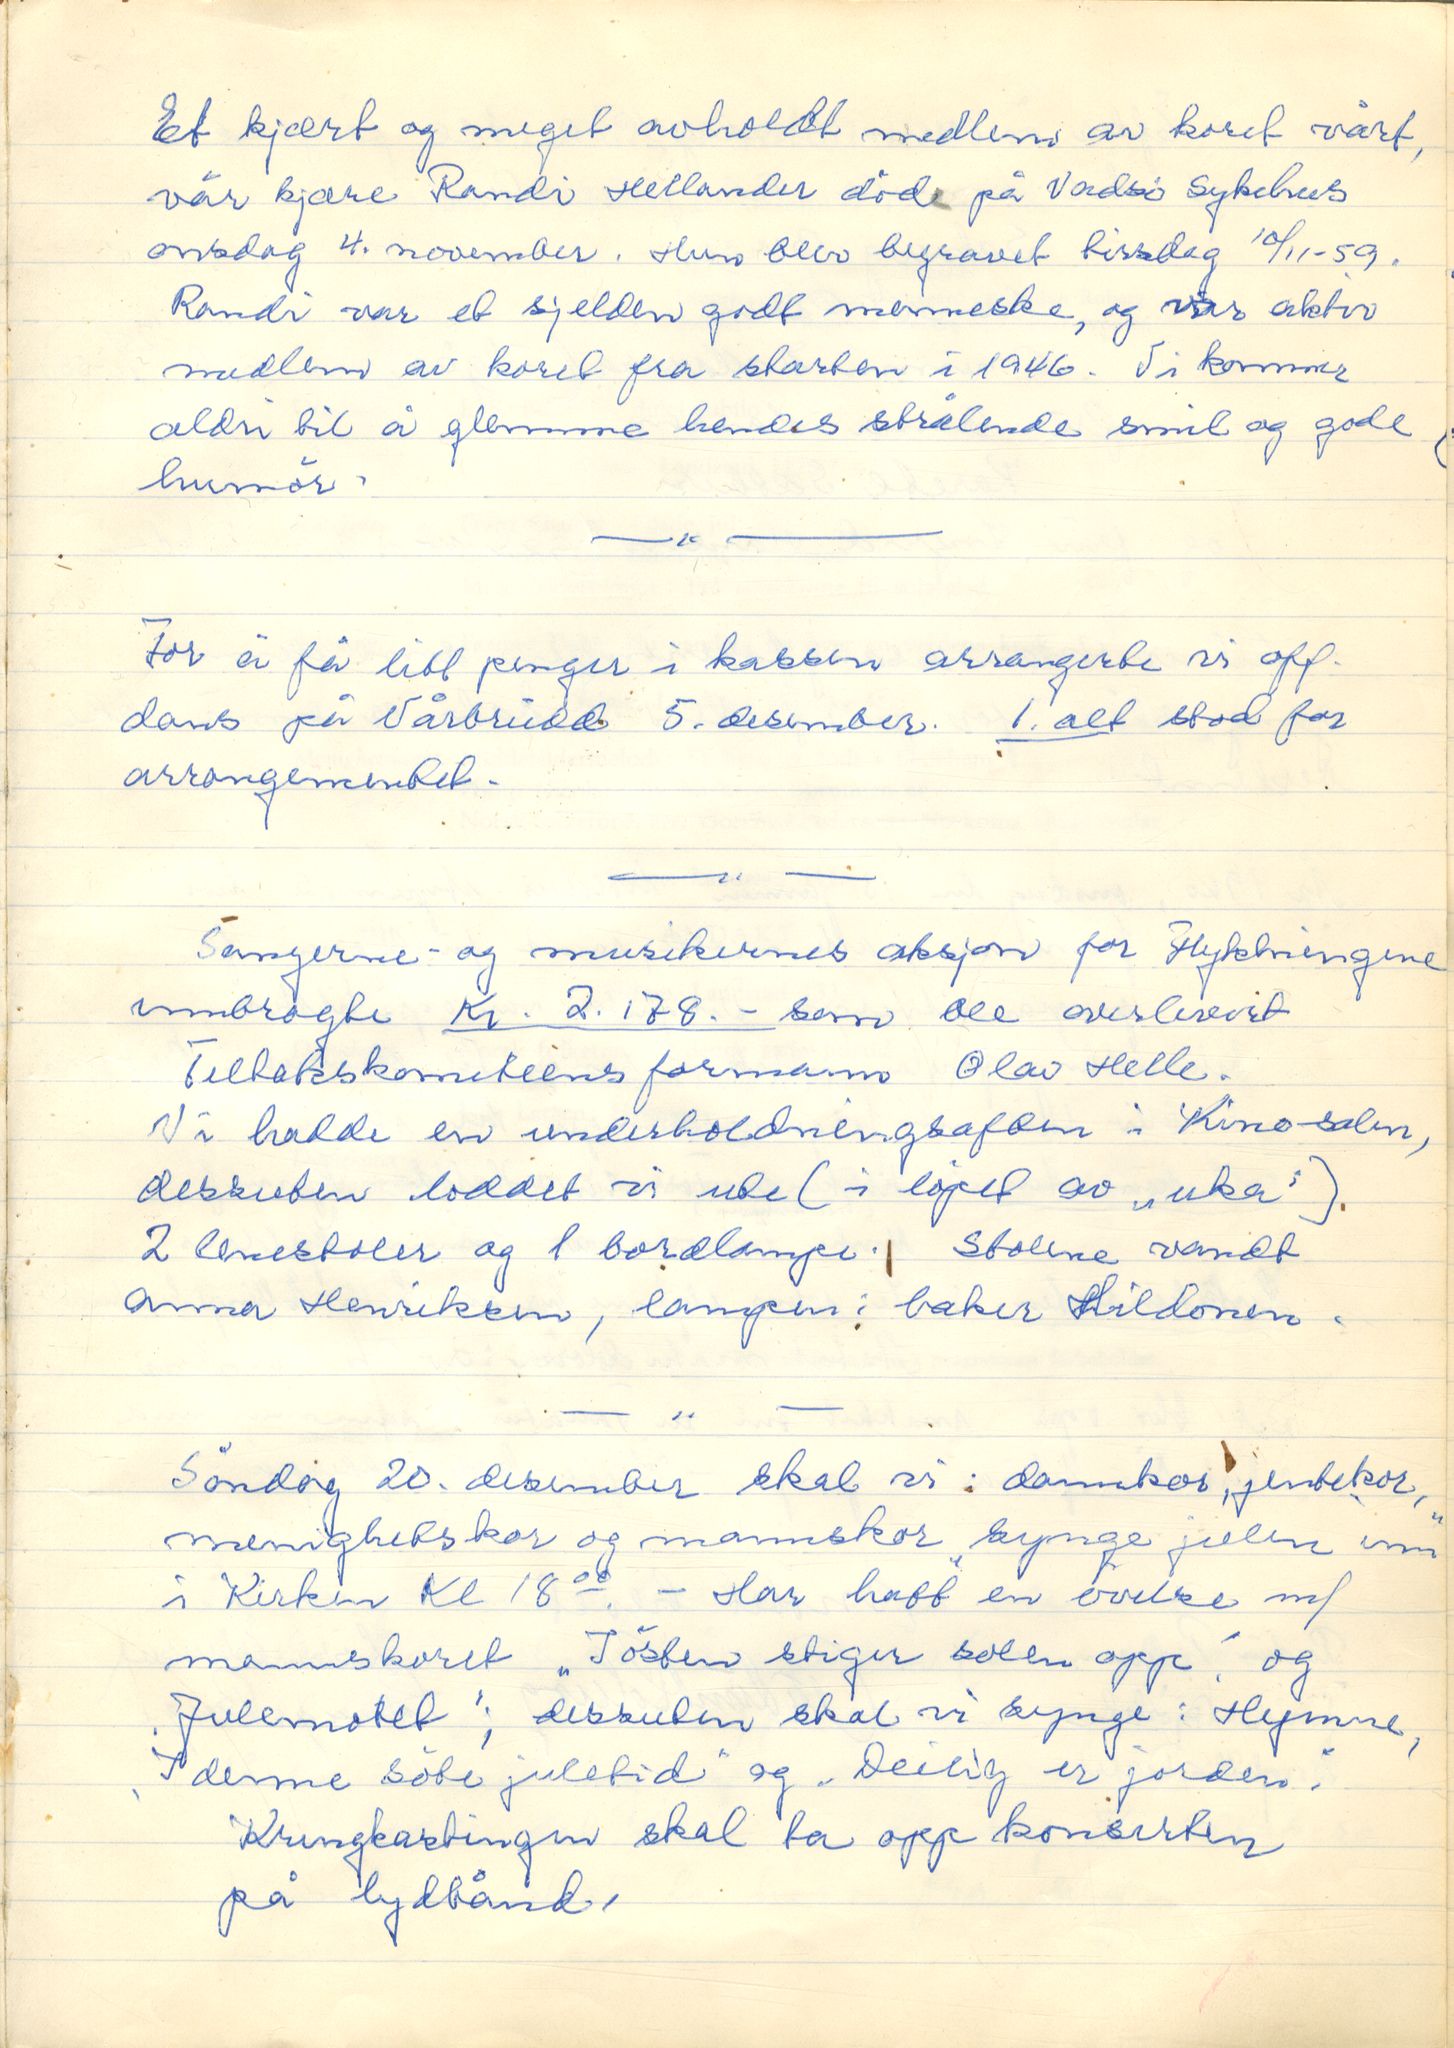 Et kjært og meget avholdt medlem av koret vårt,
vår kjære Randi Hellander döde på Vadsö Sykehus
onsdag 4. november. Hun blev begravet tirsdag 10/11-59.
Randi var et sjelden godt menneske, og var aktiv
medlem av koret fra starten i 1946. Vi kommer
aldri til å glemme hendes strålende smil og gode
humör.
For å få litt penger i kassen arrangerte vi off.
dans på Vårbrudd 5. desember. 1. alt stod for
arrangementet.
Sangerne- og musikernes aksjon for Flyktningene
innbragte Kr. 2.178.- som ble overlevert
Tiltakskomiteens formann Olav Helle.
Vi hadde en underholdningsaften i Kino-salen,
dessuten loddet vi ute (i löpet av „uka").
2 lenestoler og 1 bordlampe. Stolene vandt
Anna Henriksen, lampen: baker Hildonen.
Söndag 20. desember skal vi: damekor, jentekor,
menighetskor og mannskor „synge julen inn"
i Kirken Kl 18⁰⁰. - Har hatt en övelse m/
mannskoret „I östen stiger solen opp" og
„Julemotet", dessuten skal vi synge: Hymne,
„I denne söte juletid" og „Deilig er jorden".
Kringkastingen skal ta opp konserten
på lydbånd.